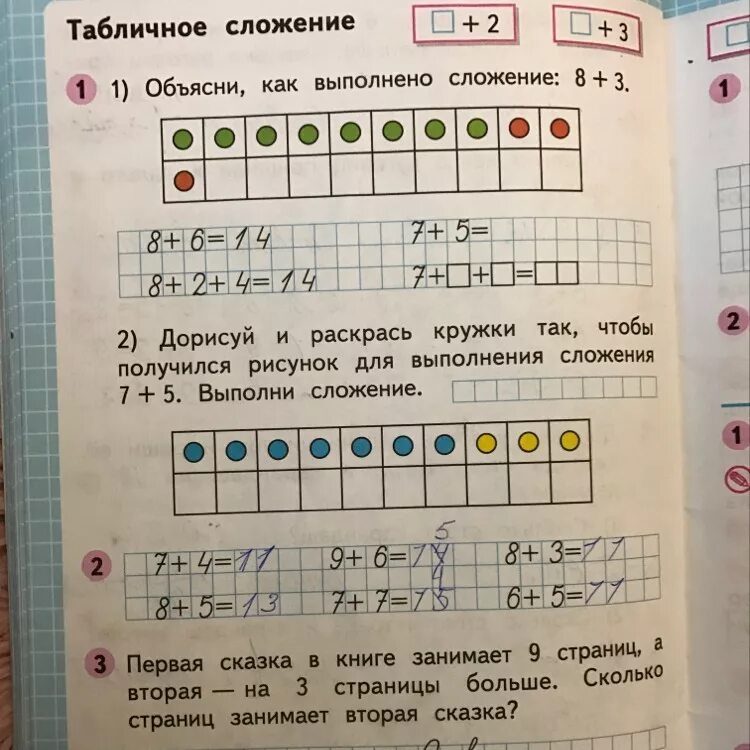 Табличное сложение □ + 2 □ + 3
1 1) Объясни, как выполнено сложение: 8 + 3.
8+6=14 7+5=
8+2+4=14 7+□+□=□□
2) Дорисуй и раскрась кружки так, чтобы
получился рисунок для выполнения сложения
7 + 5. Выполни сложение.
5
2 7+4=11 9+6=14 8+3=11
4
8+5=13 7+7=15 6+5=11
3 Первая сказка в книге занимает 9 страниц, а
вторая — на 3 страницы больше. Сколько
страниц занимает вторая сказка?
1
2
1